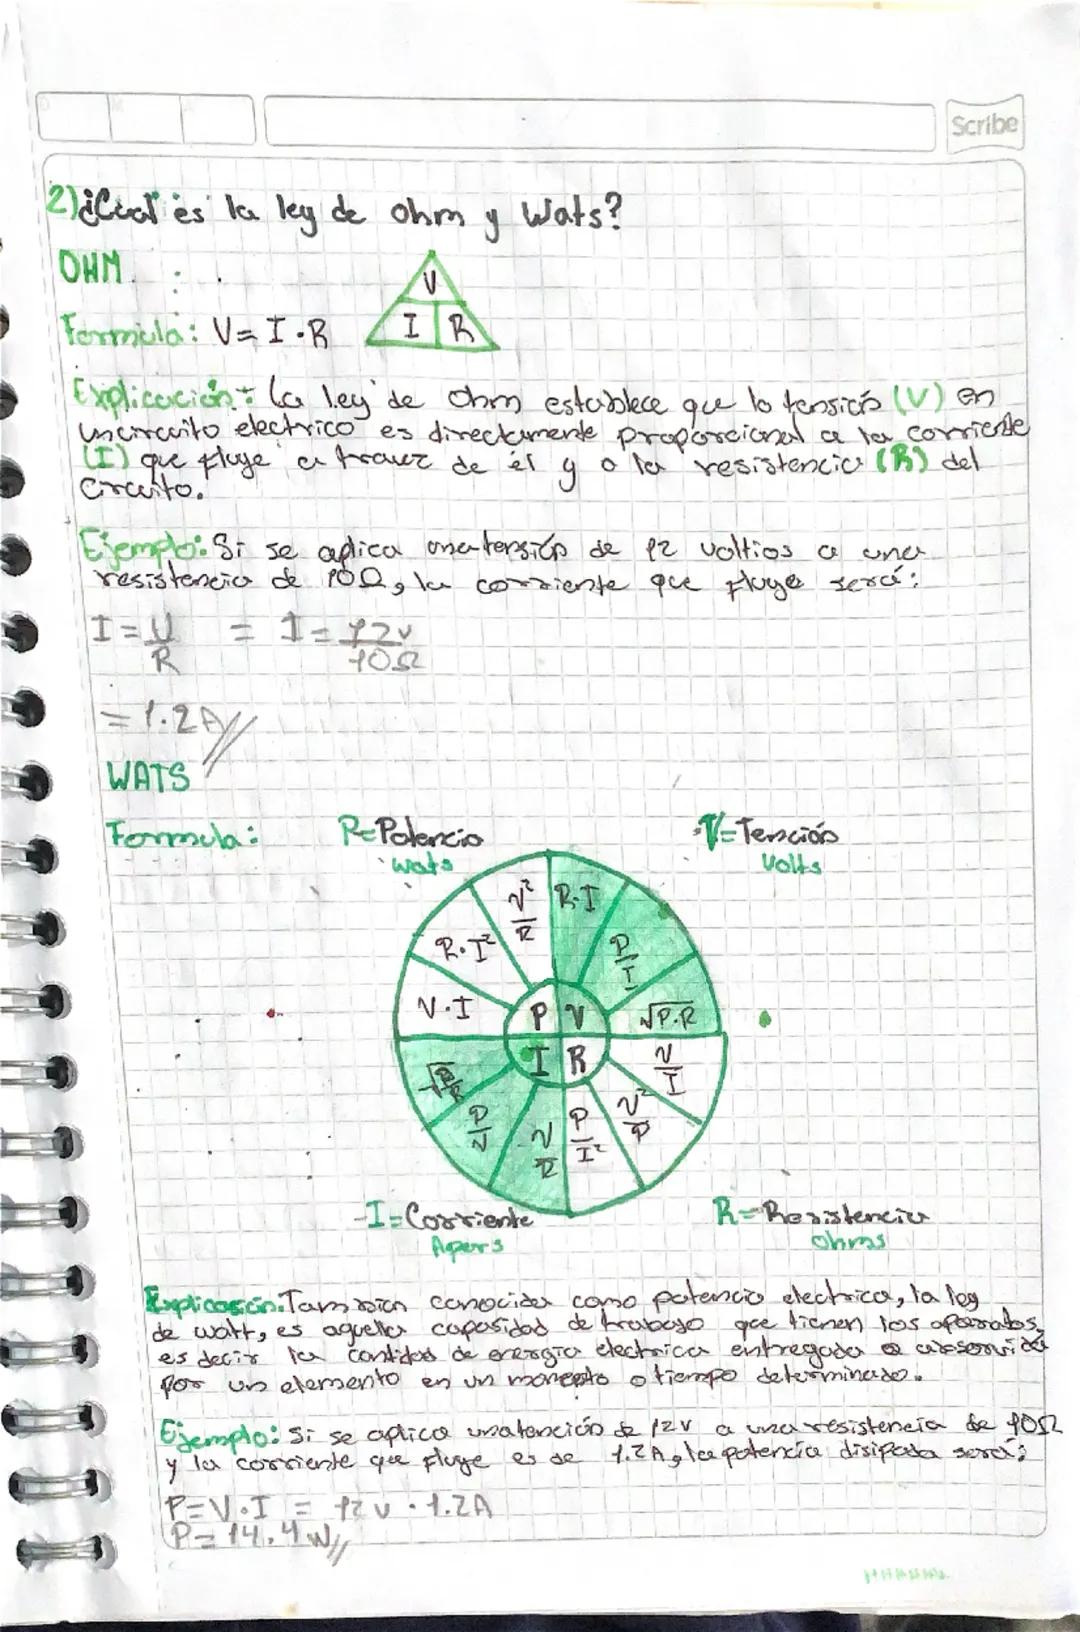 Scribe
2) ¿Cual es la ley de ohm y Wats?
OHM
V
Formula: V= I·R
I R
Explicación: La ley de Ohm establece que la tensión (V) en
un circuito electrico es directamente proporcional a la corriente
(I) que fluye a travez de él y a la resistencia (R) del
circuito.
Ejemplo: Si se aplica una tensión de 12 voltios a una
resistencia de 10Ω, la corriente que fluye será:
I = V/R = I = 12v/10Ω
= 1.2A//
WATS
Formula: P=Potencia V=Tención
wats Volts
V²/R R·I
R·I² P/I
V·I P V √P·R
I R V/I
P/V V²/P
V/R P/I²
I=Corriente R=Resistencia
Apers ohms
Explicación. Tambien conocida como potencia electrica, la ley
de watt, es aquella capasidad de trabajo que tienen los aparatos,
es decir la cantidad de energia electrica entregada o absorvida
por un elemento en un momento o tiempo determinado.
Ejemplo: Si se aplica una tención de 12v a una resistencia de 10Ω
y la corriente que fluye es de 1.2A, la potencia disipada será:
P=V·I = 12v · 1.2A
P= 14.4W//